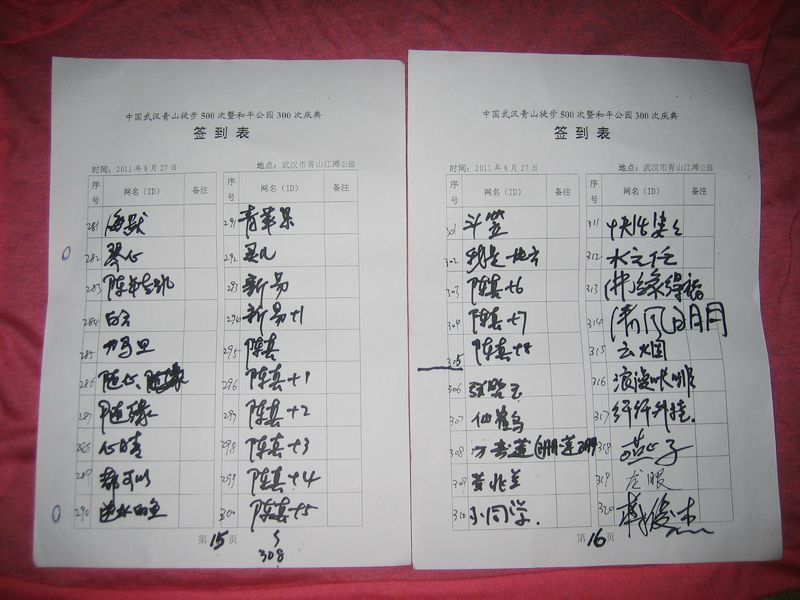 中国武汉青山徒步500次暨和平公园300次庆典
签到表
时间：2011年8月27日 地点：武汉市青山江滩公园
序号 网名（ID） 备注 序号 网名（ID） 备注
281 海默 291 青苹果
282 琴心 292
283 293 新易
284 白云 294 新易+1
285 295 陈真
286 随心随缘 296 陈真+1
287 随缘 297 陈真+2
288 心晴 298 陈真+3
289 都可以 299 陈真+4
290 逆水的鱼 300 陈真+5
308
第15页
中国武汉青山徒步500次暨和平公园300次庆典
签到表
时间：2011年8月27日 地点：武汉市青山江滩公园
序号 网名（ID） 备注 序号 网名（ID） 备注
301 斗笠 311
302 我是一地方 312
303 陈真+6 313
304 陈真+7 314 清风明月
305 陈真+8 315 云烟
306 316 浪漫咖啡
307 仙鹤 317 纤纤
308 318 燕子
309 319 龙眼
310 小同学. 320
第16页